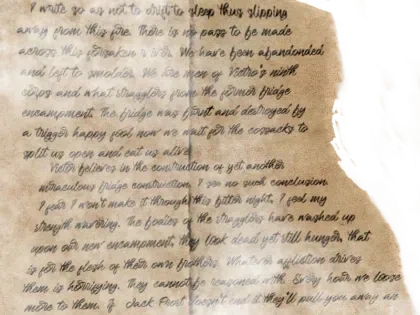 I write so as not to drift to sleep thus slipping
away from this fire. there is no pass to be made
across this forsaken river. We have been abandonded
and left to smolder. We are men of Victro's ninth
corps and what stragglers from the former bridge
encampment. the bridge was burst and destroyed by
a trigger happy fool now we wait for the cossacks to
split us open and eat us alive.
Victor believes in the construction of yet another
miraculous bridge construction. I see no such conclusion.
I fear I won't make it through this bitter night. I feel my
strength wavering. the bodies of the stragglers have washed up
upon our new encampment. they look dead yet still hunger, that
is for the flesh of their own brothers. Whatever affliction drives
them is horrifying. they cannot be reasoned with. Every hour we loose
more to them. if Jack Frost doesn't end it they'll pull you away an